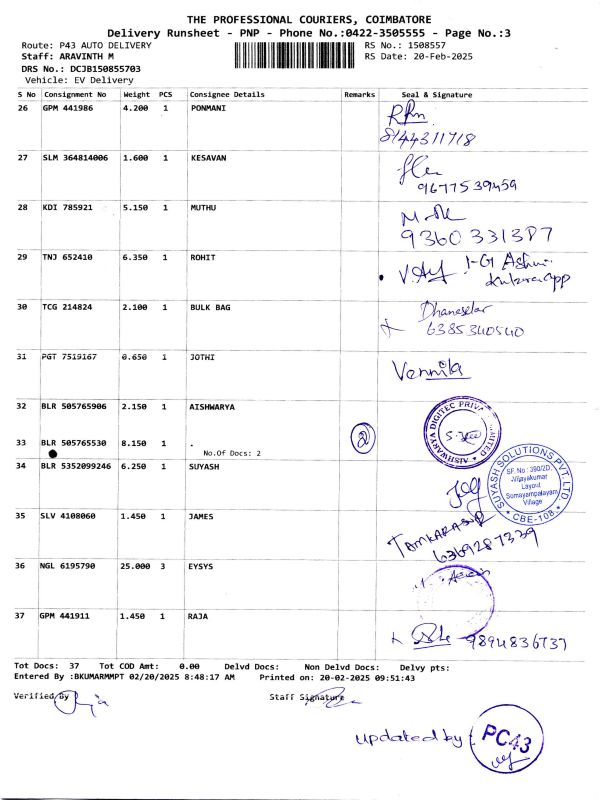 THE PROFESSIONAL COURIERS, COIMBATORE
Delivery Runsheet - PNP - Phone No.:0422-3505555 - Page No.:3
Route: P43 AUTO DELIVERY RS No.: 1508557
Staff: ARAVINTH M RS Date: 20-Feb-2025
DRS No.: DCJB150855703
Vehicle: EV Delivery
S No Consignment No Weight PCS Consignee Details Remarks Seal & Signature
26 GPM 441986 4.200 1 PONMANI
8144311718
27 SLM 364814006 1.600 1 KESAVAN
9677539459
28 KDI 785921 5.150 1 MUTHU
9360331387
29 TNJ 652410 6.350 1 ROHIT
30 TCG 214824 2.100 1 BULK BAG
6385340540
31 PGT 7519167 0.650 1 JOTHI Vennila
32 BLR 505765906 2.150 1 AISHWARYA
AISHWARYA DIGITEC PRIVATE LIMITED
33 BLR 505765530 8.150 1 . 2
No.Of Docs: 2
34 BLR 5352099246 6.250 1 SUYASH
SUYASH SOLUTIONS PVT. LTD.
SF.No: 390/2D,
Vijayakumar
Layout
Somayampalayam
Village
* CBE-108. *
35 SLV 4108060 1.450 1 JAMES
6369287339
36 NGL 6195790 25.000 3 EYSYS
37 GPM 441911 1.450 1 RAJA
9894836737
Tot Docs: 37 Tot COD Amt: 0.00 Delvd Docs: Non Delvd Docs: Delvy pts:
Entered By :BKUMARMMPT 02/20/2025 8:48:17 AM Printed on: 20-02-2025 09:51:43
Verified By Staff Signature
updated by : PC43